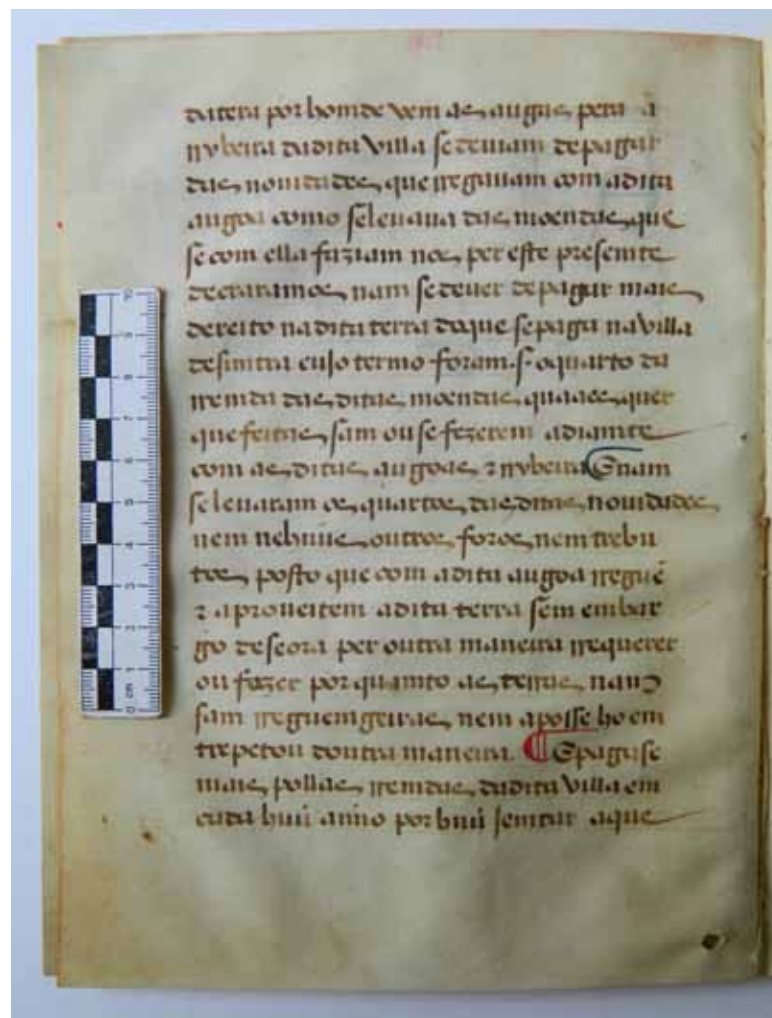 da tera por homde vem as augas pera a
rrybeira da dita villa se deuiam de pagar
das nouidades que rregauam com a dita
augoa como se leuaua das moendas que
se com ella faziam nos per este presemte
decraramos nam se deuer de pagar mais
dereito na dita terra do que se paga na villa
de simtra cujo termo foram .s. o quarto da
rremda das ditas moendas quaaes quer
que feitas sam ou se fezerem adiamte
com as ditas augoas ⁊ rrybeira E nam
se leuaram os quartos das ditas nouidades
nem nehuũs outros foros nem trebu
tos posto que com a dita augoa rreguẽ
⁊ aproueitem a dita terra sem embar
go de se ora per outra maneira rrequerer
ou fazer por quamto as terras nam
sam rreguemgeiras nem a posse ho em
trepetou doutra maneira. ¶ E paga se
mais pollas rremdas da dita villa em
cada huũ anno por huũ jemtar a que
0 cm 1 2 3 4 5 6 7 8 9 10